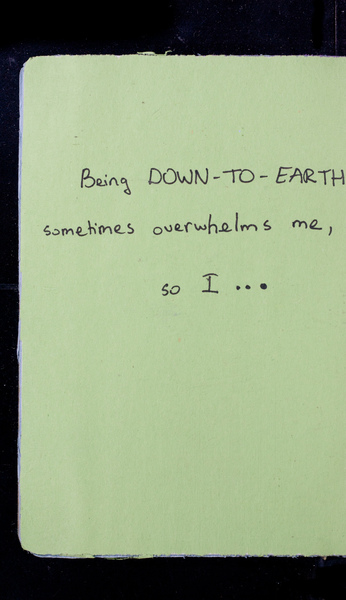 Being DOWN-TO-EARTH
sometimes overwhelms me,
so I ...